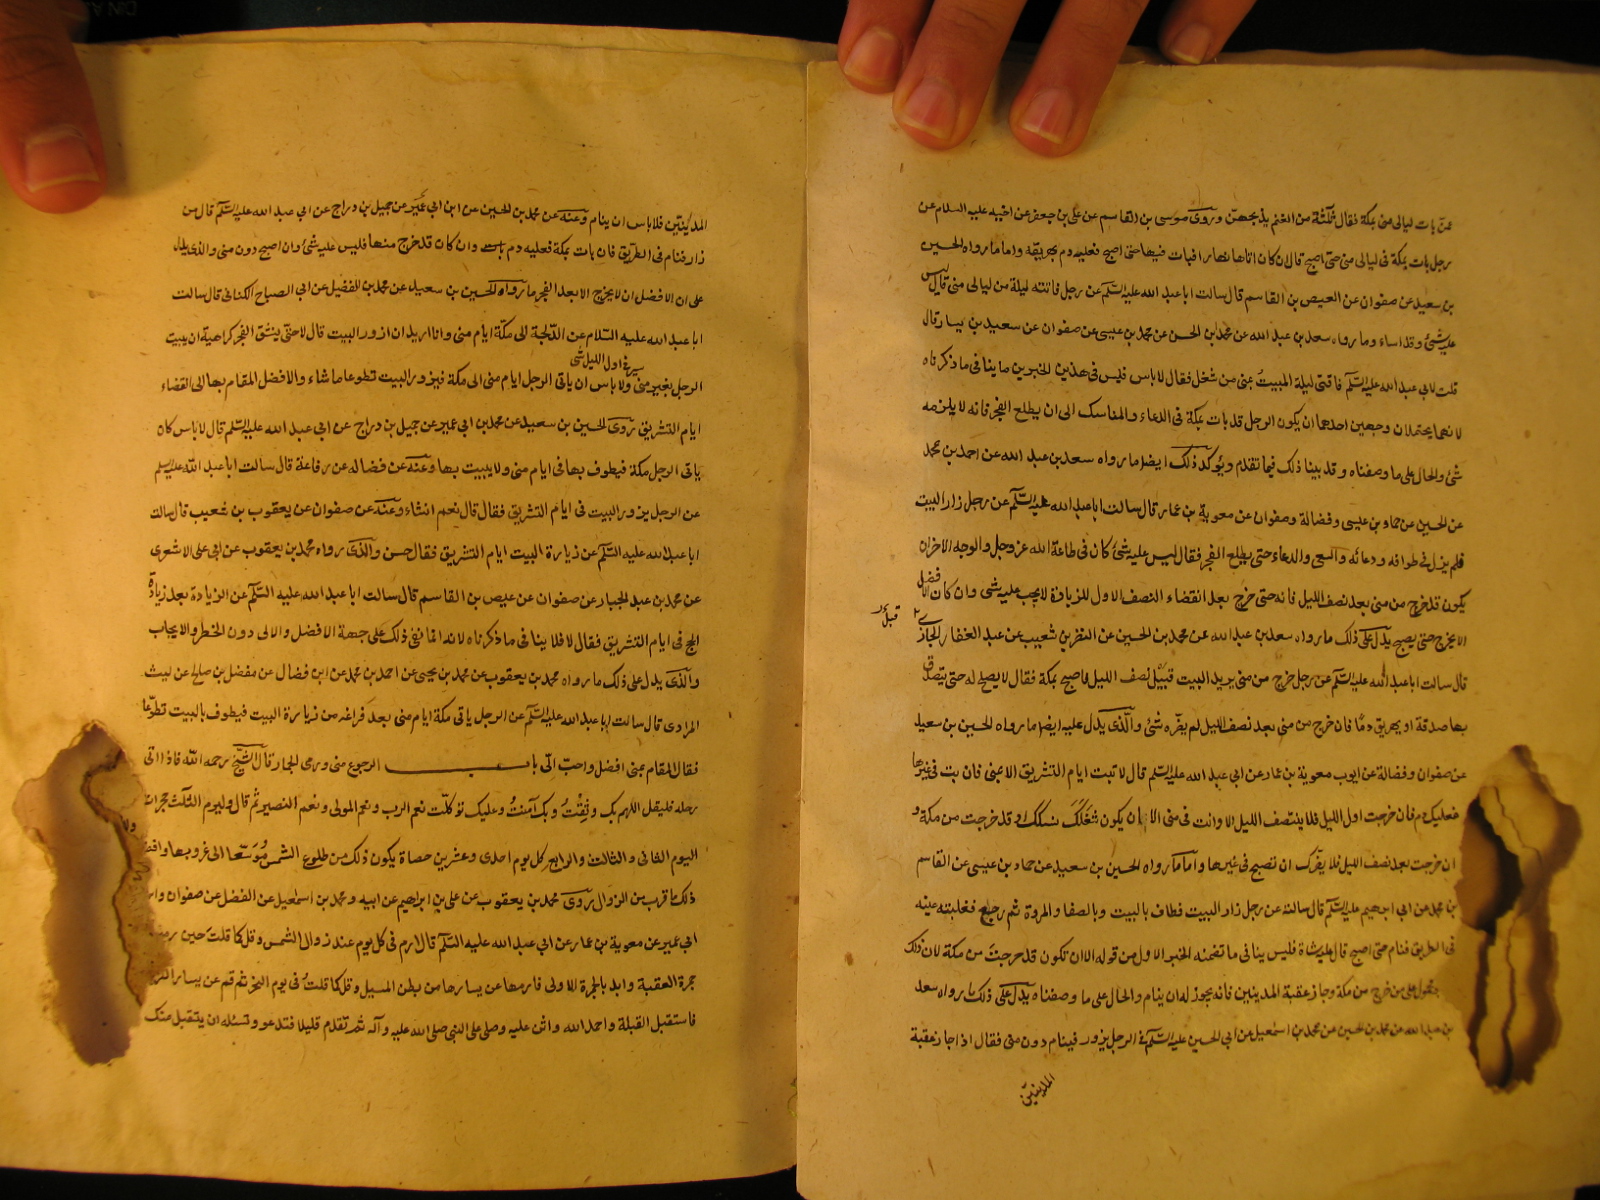 عمن بات ليالى منى بمكة فقال ثلثة من الغنم يذبحهن وروى موسى بن القاسم عن على بن جعفر عن اخيه عليه السلام عن
رجل بات بمكة فى ليالى منى حتى اصبح قال ان كان اتاها نهارا فبات فيها حتى اصبح فعليه دم يهريقه واما ما رواه الحسين
بن سعيد عن صفوان عن العيص بن القاسم قال سالت ابا عبد الله عليه السلم عن رجل فاتته ليلة من ليالى منى قال ليس
عليه شئ وقد اساء وما رواه سعد بن عبد الله عن محمد بن الحسن عن محمد بن عيسى عن صفوان عن سعيد بن يسار قال
قلت لابى عبد الله عليه السلم فاتتنى ليلة المبيت بمنى من شغل فقال لا باس فليس فى هذين الخبرين ما ينافى ما ذكرناه
لانهما يحتملان وجهين احدهما ان يكون الرجل قد بات بمكة فى الدعاء والمناسك الى ان يطلع الفجر فانه لا يلزمه
شئ والحال على ما وصفناه وقد بينا ذلك فيما تقدم ويؤكد ذلك ايضا ما رواه سعد بن عبد الله عن احمد بن محمد
عن الحسين عن حماد بن عيسى وفضالة وصفوان عن معوية بن عمار قال سالت ابا عبد الله عليه السلم عن رجل زار البيت
فلم يزل فى طوافه ودعائه والسعى والدعاء حتى يطلع الفجر فقال ليس عليه شئ كان فى طاعة الله عز وجل والوجه الاخر ان
يكون قد خرج من منى بعد نصف الليل فانه حتى خرج بعد انقضاء النصف الاول للزيارة لا يجب عليه شى وان كان الافضل
الا يخرج حتى يصبح يدل على ذلك ما رواه سعد بن عبد الله عن محمد بن الحسين عن النضر بن شعيب عن عبد الغفار الجازى
قال سالت ابا عبد الله عليه السلم عن رجل خرج من منى يريد البيت قبيل نصف الليل فاصبح بمكة فقال لا يصلح له حتى يتصدق
بها صدقة او يهريق دما فان خرج من منى بعد نصف الليل لم يضره شئ والذى يدل عليه ايضا ما رواه الحسين بن سعيد
عن صفوان وفضالة عن ايوب معوية بن عمار عن ابى عبد الله عليه السلم قال لا تبت ايام التشريق الا بمنى فان بت فى غيرها
فعليك دم فان خرجت اول الليل فلا ينتصف الليل الا وانت فى منى الا ان يكون شغلك نسكك او قد خرجت من مكة و
ان خرجت بعد نصف الليل فلا يضرك ان تصبح فى غيرها واما ما رواه الحسين بن سعيد عن حماد بن عيسى عن القاسم
بن محمد عن ابى ابرهيم عليه السلم قال سالته عن رجل زار البيت فطاف بالبيت وبالصفا والمروة ثم رجع فغلبته عينه
فى الطريق فنام حتى اصبح قال عليه شاة فليس ينافى ما تضمنه الخبر الاول من قوله الا ان تكون قد خرجت من مكة لان ذلك
محمول على من خرج من مكة وجاز عقبة المدنيين فانه يجوز له ان ينام والحال على ما وصفناه يدل على ذلك ما رواه سعد
بن عبد الله عن محمد بن الحسين عن محمد بن اسمعيل عن ابى الحسين عليه السلم فى الرجل يزور فينام دون منى فقال اذا جاز عقبة
المدنيين
المدنيين فلا باس ان ينام وعنه عن محمد بن الحسين عن ابن ابى عمير عن جميل بن دراج عن ابى عبد الله عليه السلم قال من
زار فنام فى الطريق فان بات بمكة فعليه دم وان كان قد خرج منها فليس عليه شئ وان اصبح دون منى والذى يدل
على ان الافضل ان لا يخرج الا بعد الفجر ما رواه الحسين بن سعيد عن محمد بن الفضيل عن ابى الصباح الكنانى قال سالت
ابا عبد الله عليه السلام عن الدلجة الى مكة ايام منى وانا اريد ان ازور البيت قال لا حتى ينشق الفجر كراهية ان يبيت
الرجل بغير منى ولا باس ان ياتى الرجل ايام منى الى مكة فيزور البيت تطوعا ما شاء والافضل المقام بها الى انقضاء
ايام التشريق روى الحسين بن سعيد عن محمد بن ابى عمير عن جميل بن دراج عن ابى عبد الله عليه السلم قال لا باس كان
ياتى الرجل مكة فيطوف بها فى ايام منى ولا يبيت بها وعنه عن فضاله عن رفاعة قال سالت ابا عبد الله عليه السلم
عن الرجل يزور البيت فى ايام التشريق فقال قال نعم انشاء وعنه عن صفوان عن يعقوب بن شعيب قال سالت
ابا عبد الله عليه السلم عن زيارة البيت ايام التشريق فقال حسن والذى رواه محمد بن يعقوب عن ابى على الاشعرى
عن محمد بن عبد الجبار عن صفوان عن عيص بن القاسم قال سالت ابا عبد الله عليه السلم عن الزيادة بعد زيارة
الحج فى ايام التشريق فقال لا فلا ينافى ما ذكرناه لانه انما نفى ذلك على جهة الافضل والاولى دون الخطر والايجاب
والذى يدل على ذلك ما رواه محمد بن يعقوب عن محمد بن يحيى عن احمد بن محمد عن ابن فضال عن مفضل بن صالح عن ليث
المرادى قال سالت ابا عبد الله عليه السلم عن الرجل ياتى مكة ايام منى بعد فراغه من زيارة البيت فيطوف بالبيت تطوعا
فقال المقام بمنى افضل واحب الى باب الرجوع منى ورمى الجمار قال الشيخ رحمه الله فاذا اتى
رحله فليقل اللهم بك وثقت وبك امنت وعليك توكلت نعم الرب ونعم المولى ونعم النصير ثم قال وليرم الثلث جمرات
اليوم الثانى والثالث والرابع كل يوم احدى وعشرين حصاة يكون ذلك من طلوع الشمس موسعا الى غروبها
ذلك ما قرب من الزوال روى محمد بن يعقوب عن على بن ابراهيم عن ابيه ومحمد بن اسمعيل عن الفضل عن صفوان
ابى عمير عن معوية بن عمار عن ابى عبد الله عليه السلم قال ارم فى كل يوم عند زوال الشمس وقل كما قلت حين
جمرة العقبة وابدا بالجمرة الاولى فارمها عن يسارها من بطن المسيل وقل كما قلت فى يوم النحر ثم قم عن يسار
فاستقبل القبلة واحمد الله واثن عليه وصلى على النبى صلى الله عليه وآله ثم تقدم قليلا فتدعو وتسئله ان يتقبل منك